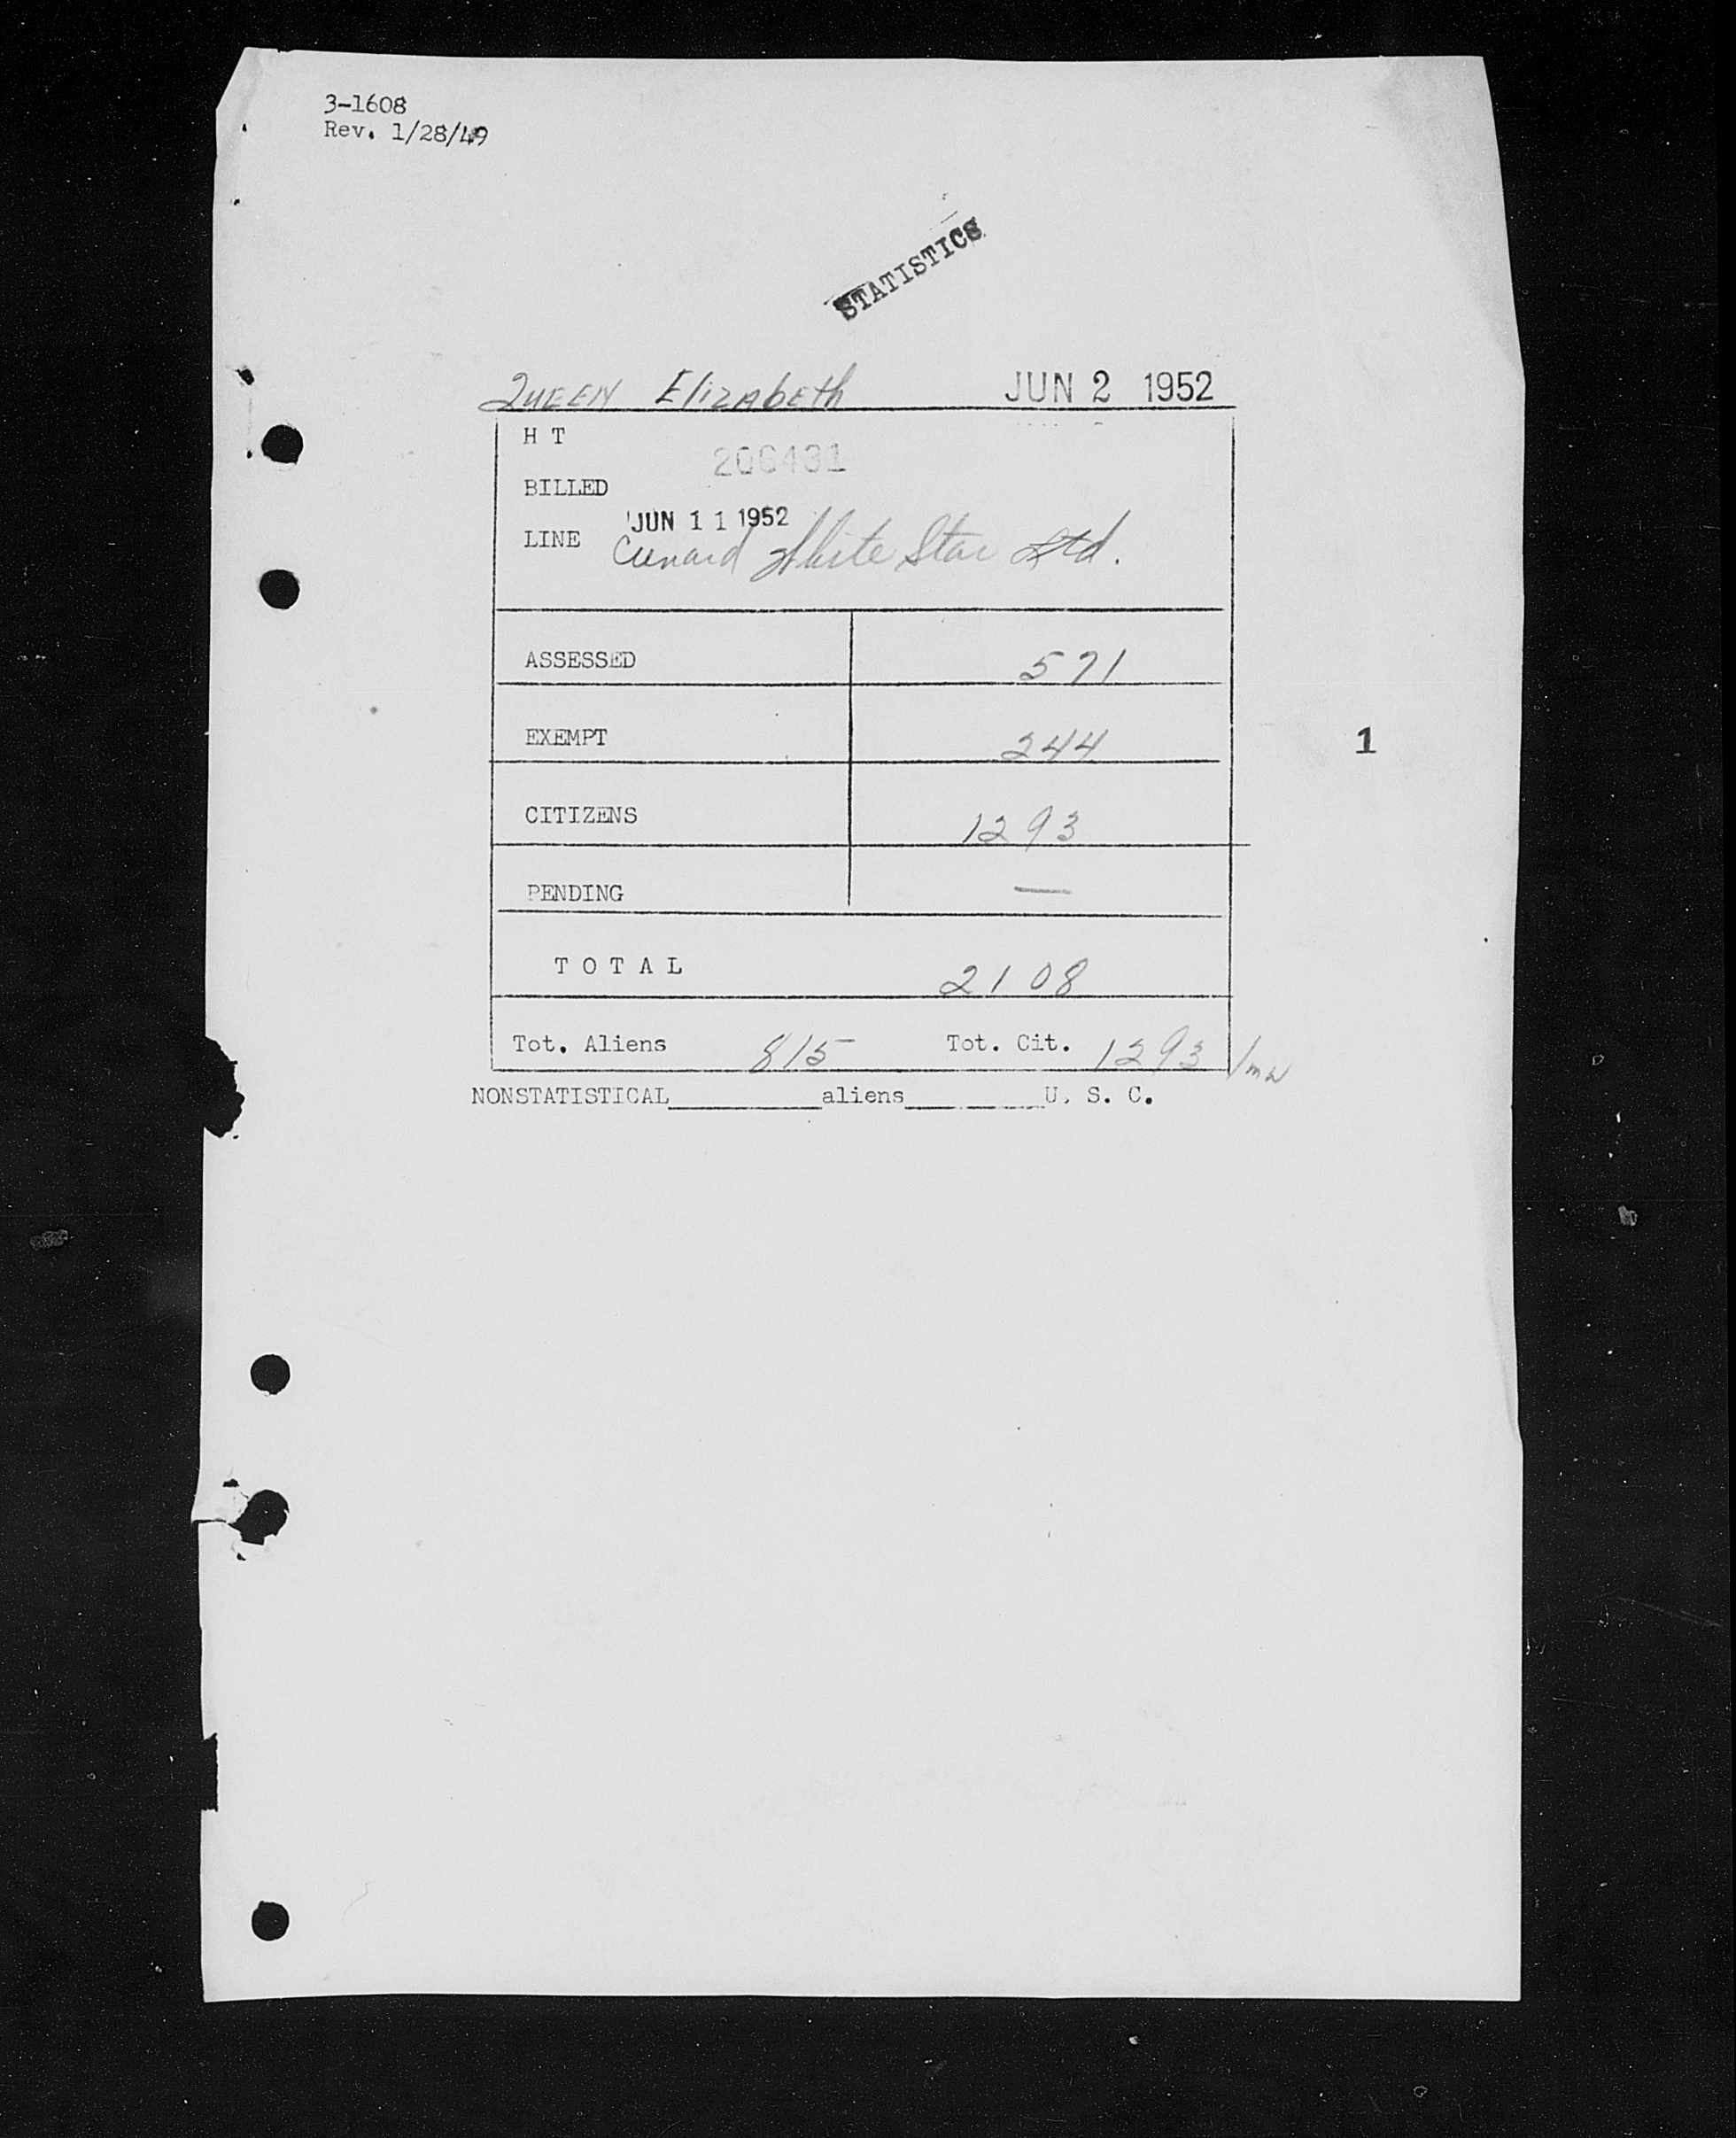 3-1608
Rev. 1/28/49
STATISTICS
QUEEN Elizabeth JUN 2 1952
H T
BILLED
JUN 11 1952
LINE Cunard White Star Ltd.
ASSESSED 571
EXEMPT 244
1
CITIZENS 1293
PENDING —
T O T A L 2108
Tot. Aliens 815 Tot. Cit. 1293
NONSTATISTICAL__________aliens__________U. S. C.